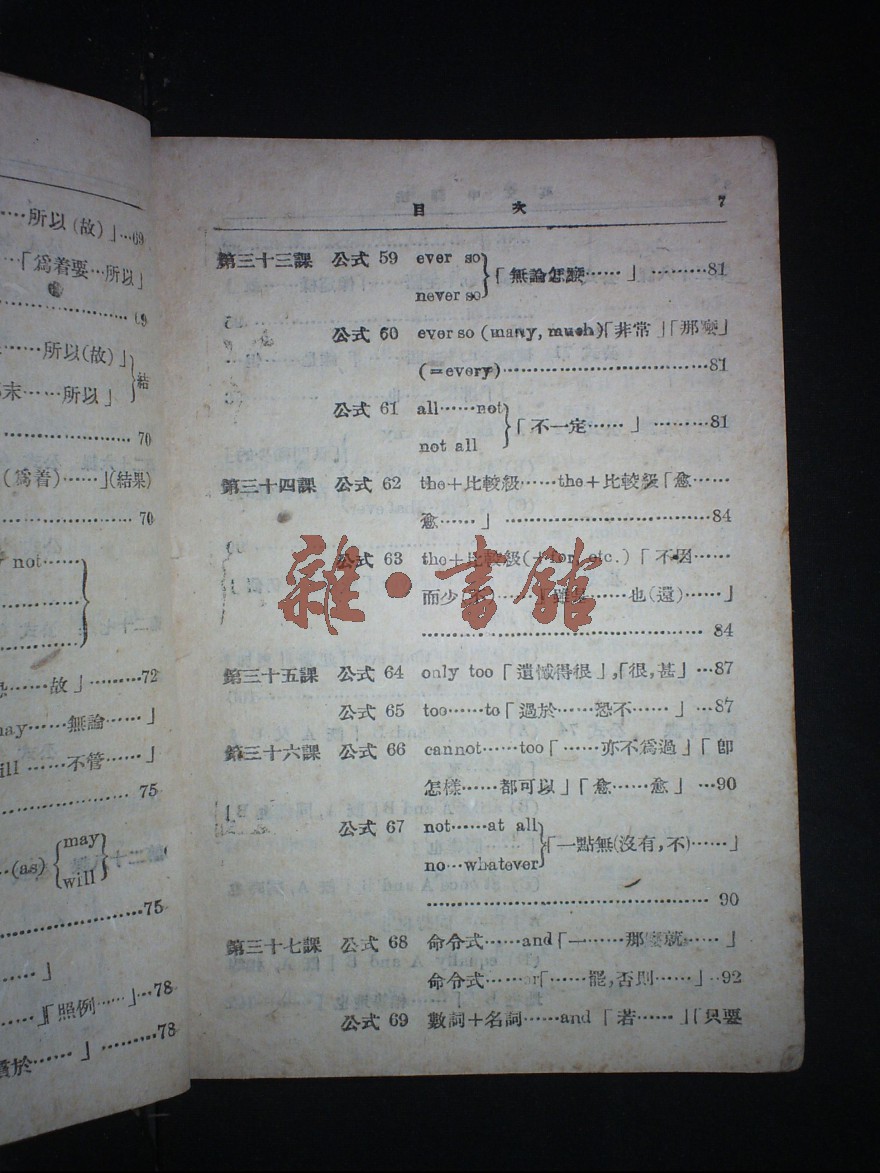 ……所以(故)」…69
…「爲着要…所以」
69
……所以(故)」
末……所以」
結
70
(爲着)……」(結果)
70
not……
……故」………72
may……無論……」
will……不管……」
75
…(as)
may
will
75
……」
……」「照例……」…78
……」………78
目 次 7
第三十三課 公式 59 ever so
never so
「無論怎麼……」………81
公式 60 ever so (many, much)「非常」「那麼」
(=every)………81
公式 61 all……not
not all
「不一定……」………81
第三十四課 公式 62 the+比較級……the+比較級「愈……
愈……」………84
公式 63 the+比較級(+for, etc.)「不因……
而少……也(還)……」
………84
第三十五課 公式 64 only too「遺憾得很」,「很,甚」…87
公式 65 too……to「過於……恐不……」…87
第三十六課 公式 66 cannot……too「……亦不爲過」「卽
怎樣……都可以」「愈……愈」…90
公式 67 not……at all
no…whatever
「一點無(沒有,不)……」
………90
第三十七課 公式 68 命令式……and「一……那麼就……」
命令式……or「……罷,否則……」…92
公式 69 數詞+名詞……and「若……」「只要
雜·書館